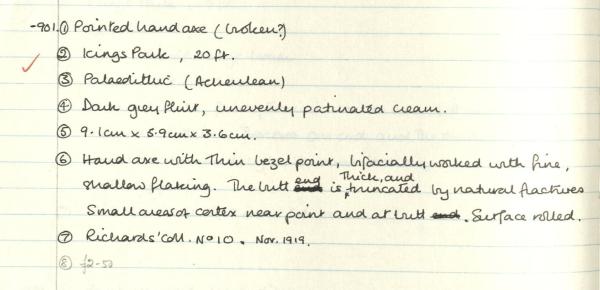 -901. ① Pointed hand axe (broken?)
② Kings Park, 20 ft.
③ Palaeolithic (Acheulean)
④ Dark grey flint, unevenly patinated cream.
⑤ 9.1cm x 5.9cm x 3.6cm.
⑥ Hand axe with thin bezel point, bifacially worked with fine,
shallow flaking. The butt end is thick, and truncated by natural fractures
Small areas of cortex near point and at butt. Surface rolled.
⑦ Richards' Coll. No 10. Nov. 1919.
⑧ £2-50